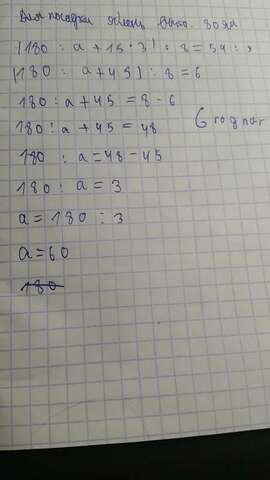 Для посадки яблонь выко. 30 ям
(180 : a + 15 · 3) : 8 = 54 : 9
(180 : a + 45) : 8 = 6
180 : a + 45 = 8 · 6
180 : a + 45 = 48
180 : a = 48 - 45
180 : a = 3
a = 180 : 3
a = 60
180
6